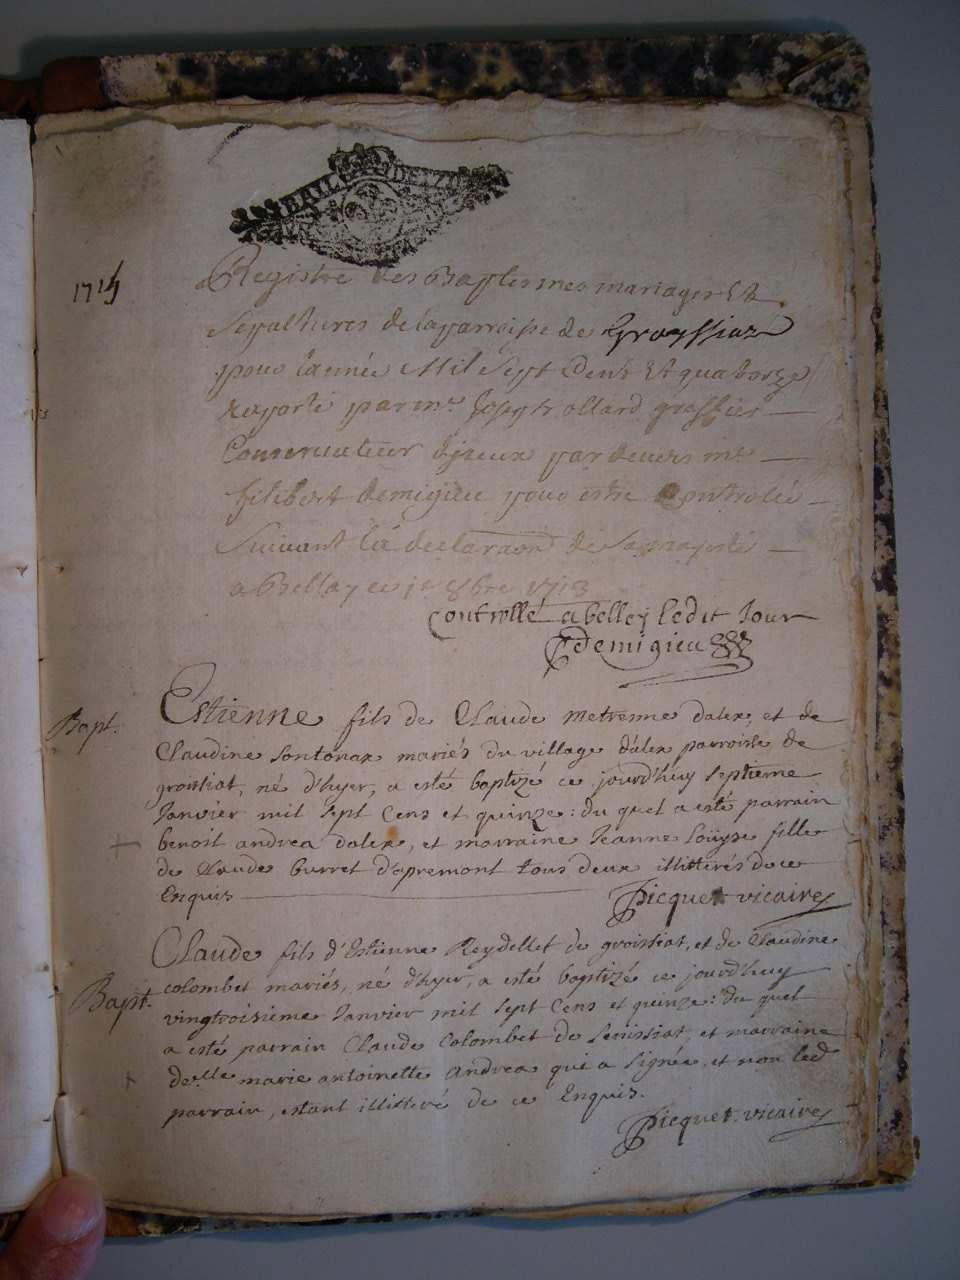 BAIL DE
1715
Registre des Baptesmes mariages Et
Sepultures de la parroisse de Groyssiaz
pour l'année Mil Sept Cens Et quatorze
par mre Joseph rollard greffier
Conservateur d'iceux par devers mre
filibert demigieu pour estre Controlée
Suivant la declaraon de Sa majesté
a Bellay ce 1r 8bre 1713
Controllé a belley ledit Jour
Demigieu
Bapt. Estienne fils de Claude metrenne dalex, et de
Claudine Sontonax mariés du village d'alex parroisse de
groissiat, né d'hyer, a esté baptizé ce jourd'huy septieme
Janvier mil sept Cens et quinze: du quel a esté parrain
benoit andrea dalex, et marraine Jeanne Loüyse fille
de Claude burret d'apremont tous deux illitterés de ce
Enquis
Picquet vicaire
Bapt. Claude fils d'Estienne Reydellet de groissiat, et de Claudine
colombet mariés, né d'hyer, a esté baptizé ce jourd'huy
vingtroisieme Janvier mil sept Cens et quinze: du quel
a esté parrain Claude Colombet de Senissiat, et marraine
delle marie antoinette andrea qui a signée, et non led
parrain, estant illitteré de ce Enquis.
Picquet. vicaire